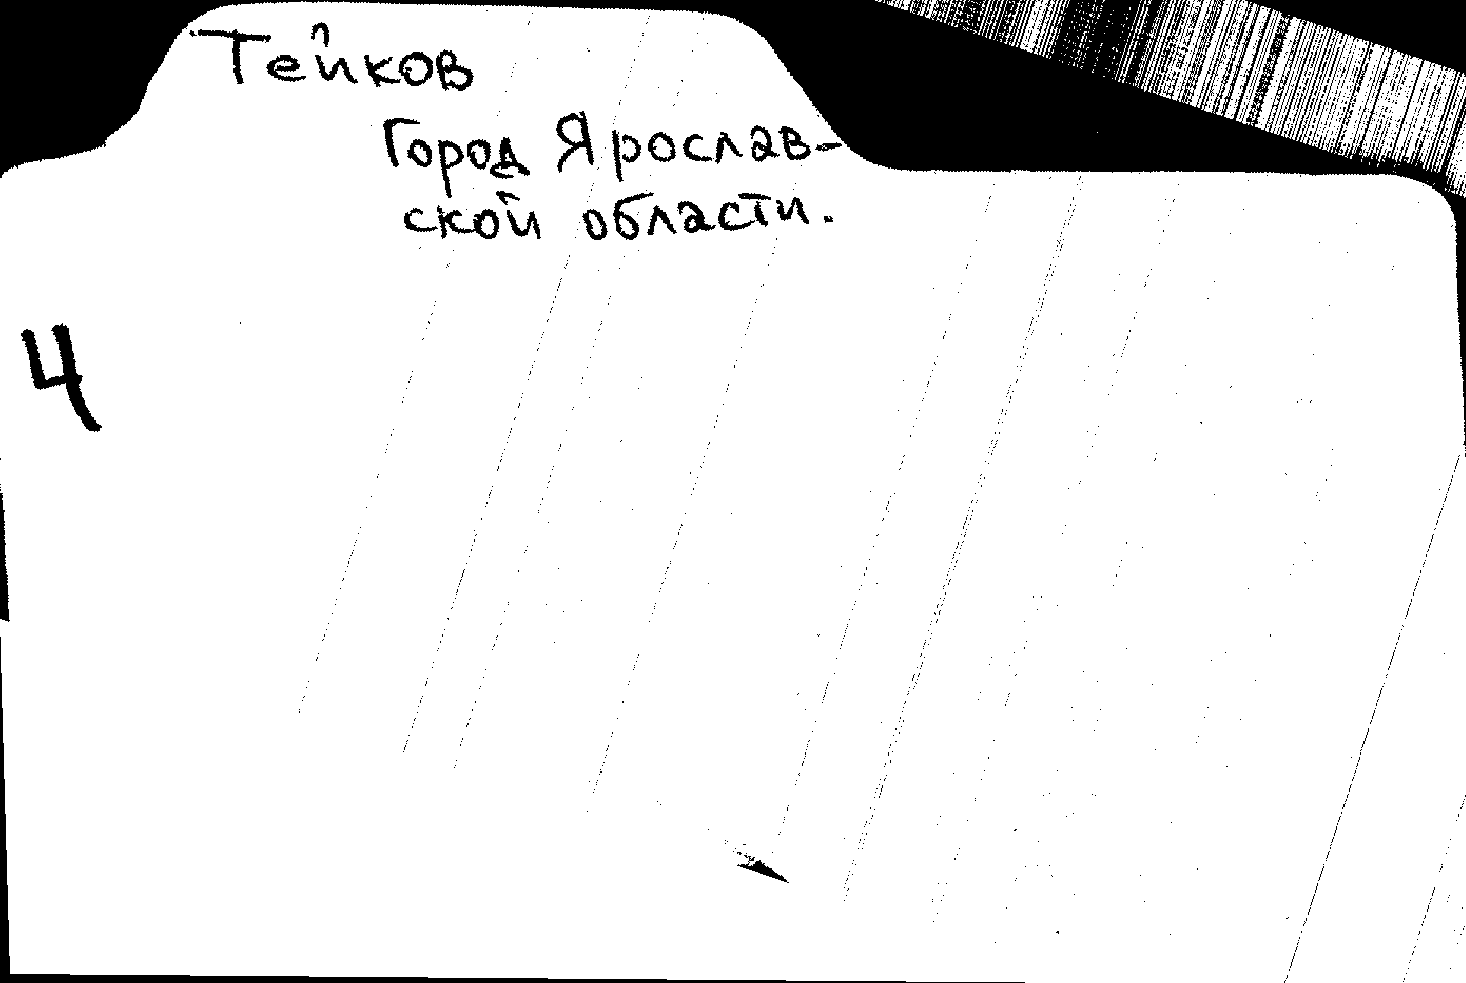 Тейков
Город Ярослав-
ской области.
4